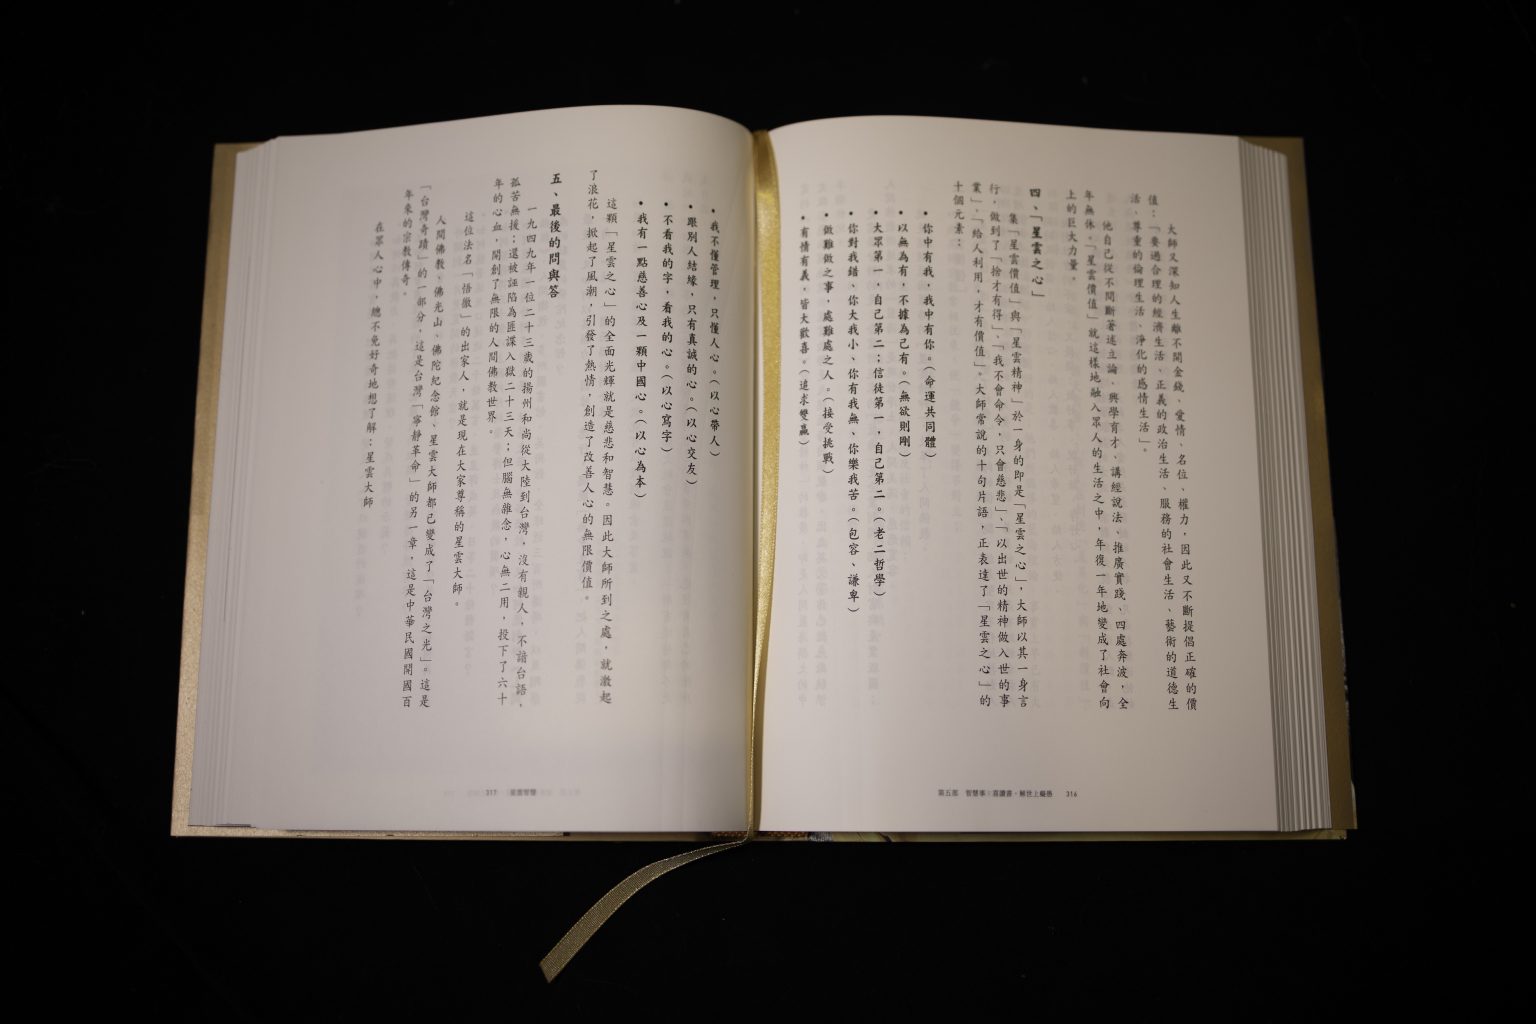 大師又深知人生離不開金錢、愛情、名位、權力，因此又不斷提倡正確的價
值：「要過合理的經濟生活、正義的政治生活、服務的社會生活、藝術的道德生
活、尊重的倫理生活、淨化的感情生活」。
他自己從不間斷著述立論、興學育才、講經說法、推廣實踐、四處奔波，全
年無休。「星雲價值」就這樣地融入眾人的生活之中，年復一年地變成了社會向
上的巨大力量。
四、「星雲之心」
集「星雲價值」與「星雲精神」於一身的即是「星雲之心」，大師以其一身言
行，做到了「捨才有得」、「我不會命令，只會慈悲」、「以出世的精神做入世的事
業」、「給人利用，才有價值」。大師常說的十句片語，正表達了「星雲之心」的
十個元素：
•你中有我，我中有你。（命運共同體）
•以無為有，不據為己有。（無欲則剛）
•大眾第一，自己第二；信徒第一，自己第二。（老二哲學）
•你對我錯、你大我小、你有我無、你樂我苦。（包容、謙卑）
•做難做之事，處難處之人。（接受挑戰）
•有情有義，皆大歡喜。（追求雙贏）
第五部 智慧事：喜讀書，解世上礙愚 316
•我不懂管理，只懂人心。（以心帶人）
•跟別人結緣，只有真誠的心。（以心交友）
•不看我的字，看我的心。（以心寫字）
•我有一點慈善心及一顆中國心。（以心為本）
這顆「星雲之心」的全面光輝就是慈悲和智慧。因此大師所到之處，就激起
了浪花，掀起了風潮，引發了熱情，創造了改善人心的無限價值。
五、最後的問與答
一九四九年一位二十三歲的揚州和尚從大陸到台灣，沒有親人，不諳台語，
孤苦無援；還被誣陷為匪諜入獄二十三天；但腦無雜念，心無二用，投下了六十
年的心血，開創了無限的人間佛教世界。
這位法名「悟徹」的出家人，就是現在大家尊稱的星雲大師。
人間佛教、佛光山、佛陀紀念館、星雲大師都已變成了「台灣之光」。這是
「台灣奇蹟」的一部分，這是台灣「寧靜革命」的另一章，這是中華民國開國百
年來的宗教傳奇。
在眾人心中，總不免好奇地想了解：星雲大師
317 星雲智慧